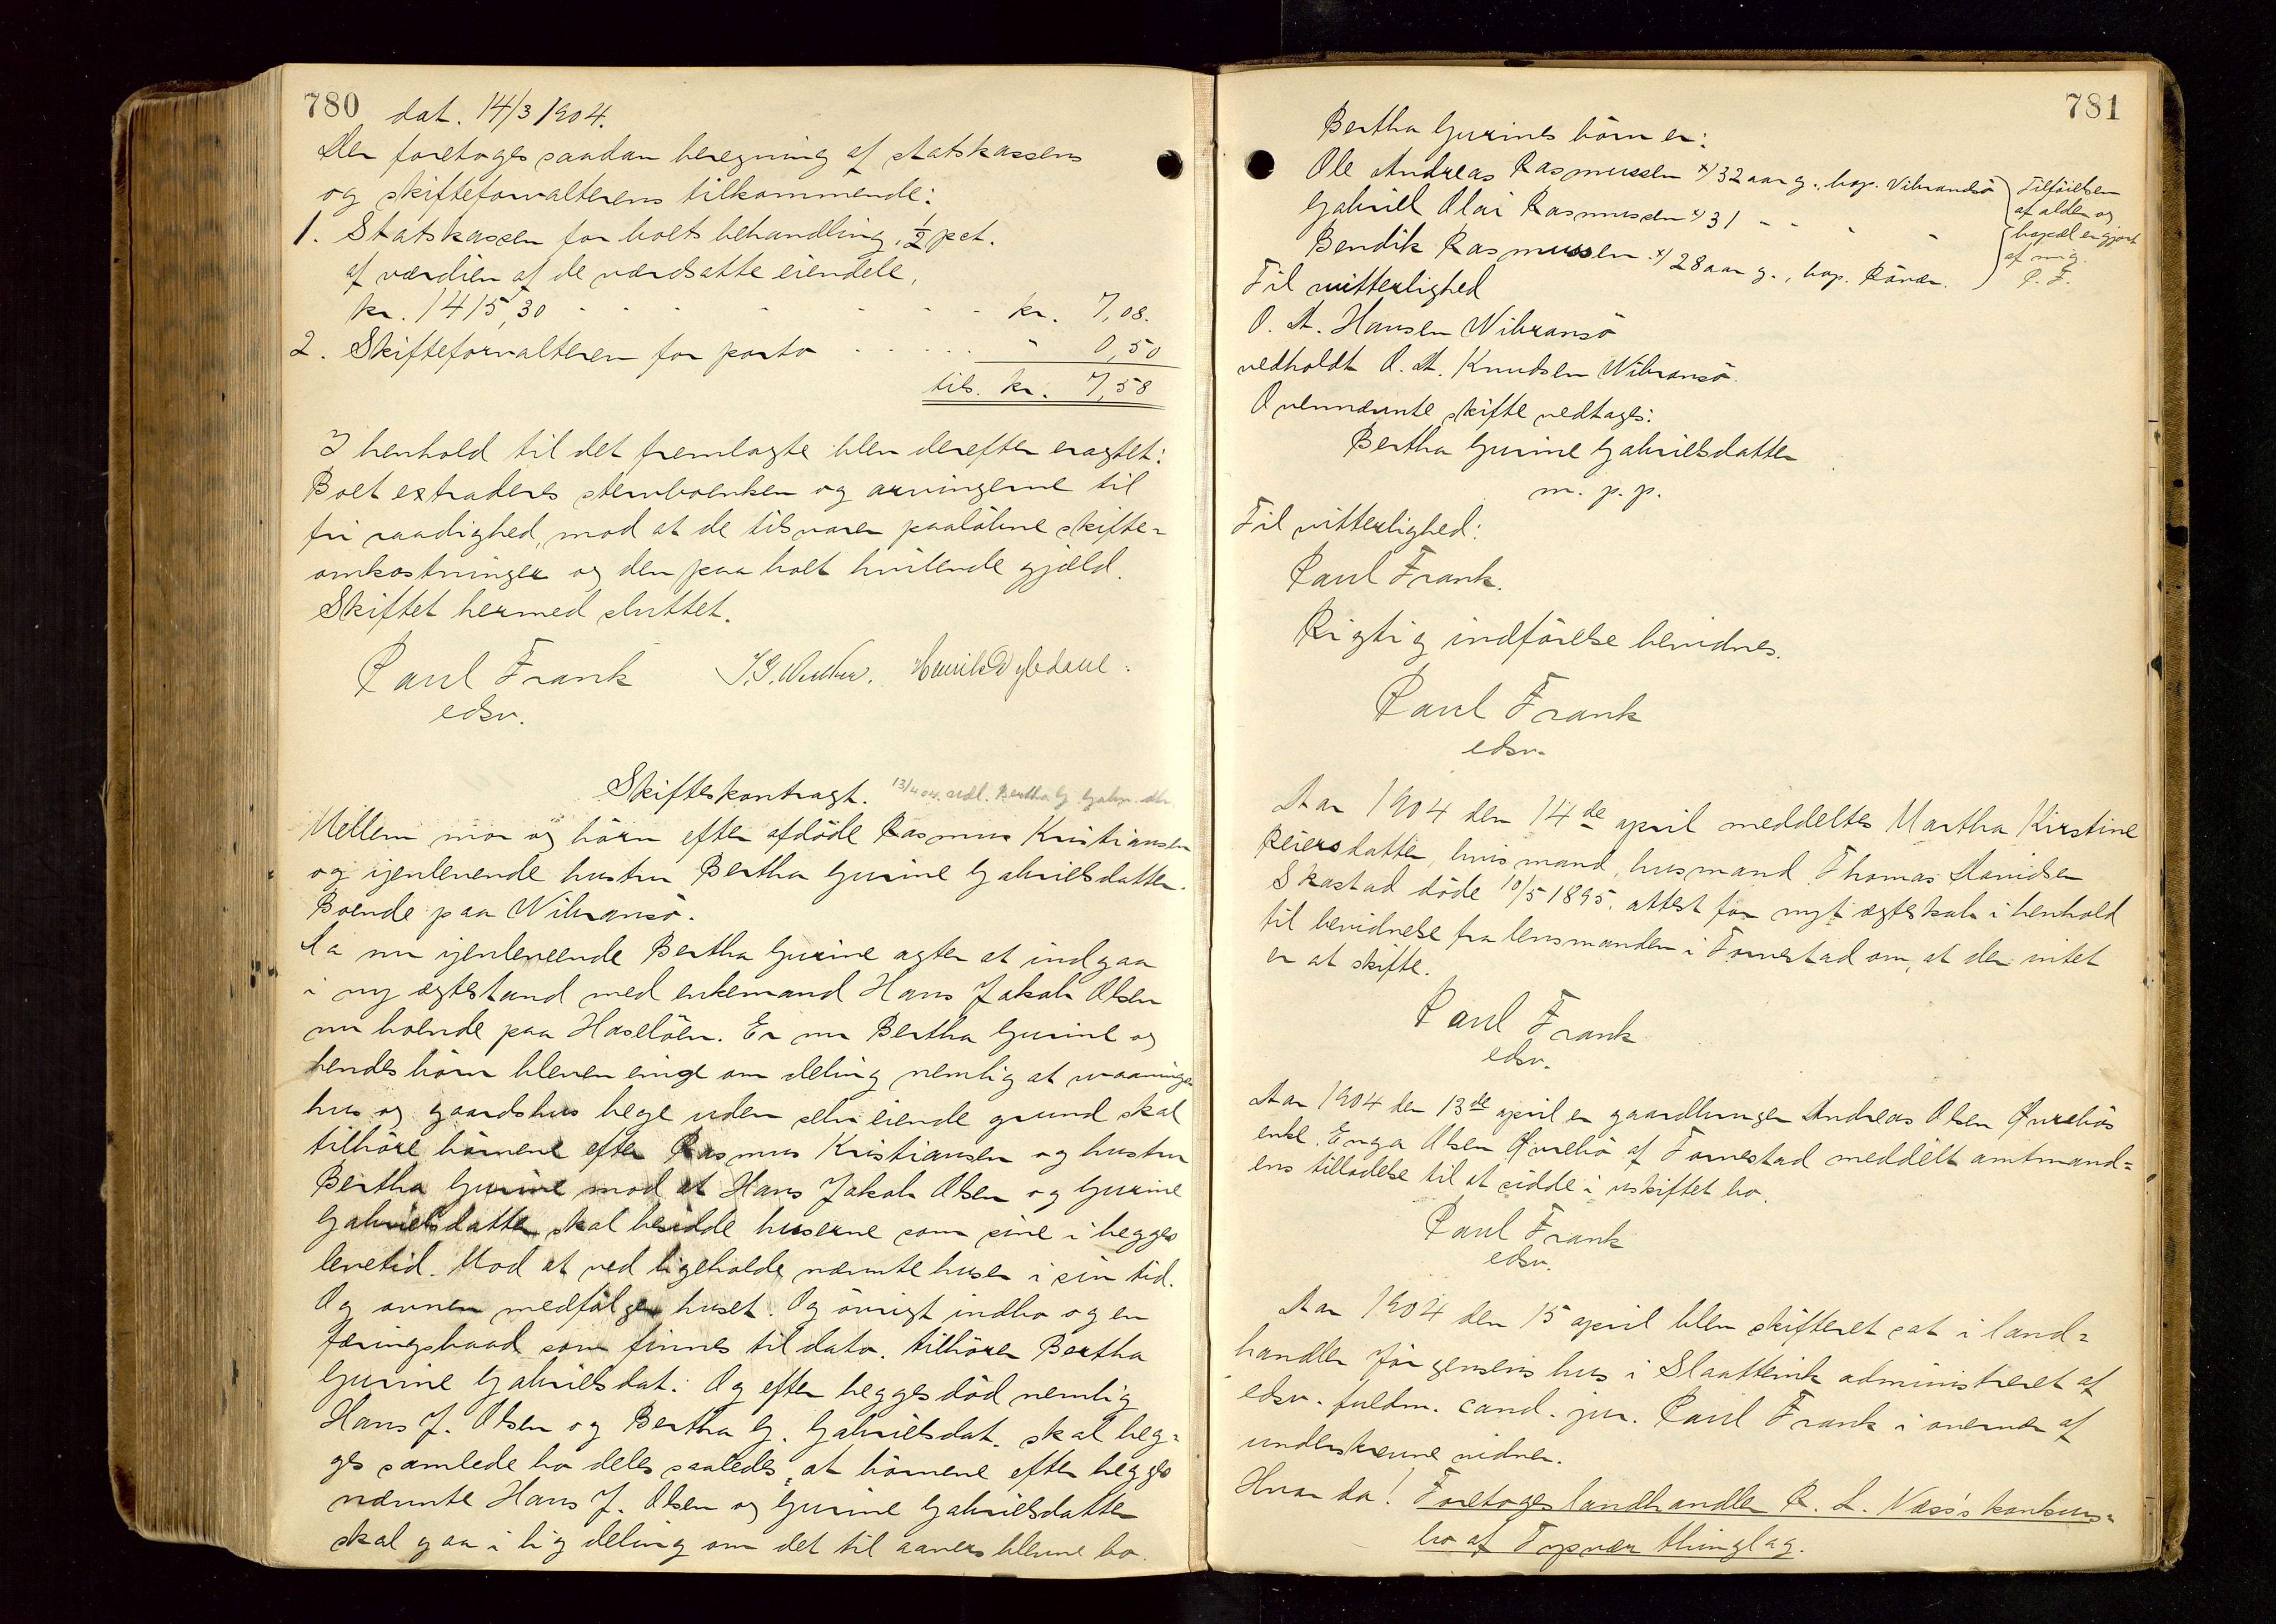 780
dat. 14/3 1904.
Der foretoges saadan beregning af statskassens
og skifteforvalterens tilkommende:
1. Statskassen for boets behandling, ½ pct.
af værdien af de værdsatte eiendele,
kr. 1415,30 - - - - - - kr. 7,08.
2. Skifteforvalteren for porto . . . . . " 0,50
tils. kr. 7,58
I henhold til det fremlagte blev derefter eragtet:
Boet extraderes stervboenken og arvingerne til
fri raadighed, mod at de tilsvarer paaløbne skifte=
omkostninger og den paa boet hvilende gjæld.
Skiftet hermed sluttet.
Paul Frank
edsv.
Skifteskontragt. 13/4 04. Bertha G. Gabr. dtr
Mellem mor og børn efter afdöde Rasmus Kristiansen
og igenlevende hustru Bertha Gurine Gabrielsdatter.
Boende paa Wibransö.
Da nu igenleveende Bertha Gurine agter at indgaa
i ny egtestand med enkemand Hans Jakob Olsen
nu boende paa Haselöen. Er nu Bertha Gurine og
hendes börn bleven enige om deling nemlig at vaanings
hus og gaardshus bege uden selv eiende grund skal
tilhöre börnene efter Rasmus Kristiansen og hustru
Bertha Gurine mod at Hans Jakob Olsen og Gurine
Gabrielsdatter skal besidde huserne som sine i begges
levetid. Mod at ved ligeholde nævnte huser i sin tid.
Og ovnen medfölger huset. Og övrigt indbo og en
færingsbaad som finnes til dato. tilhörer Bertha
Gurine Gabrielsdat. Og efter begges död nemlig
Hans J. Olsen og Bertha G. Gabrielsdat. skal beg=
ges samlede bo deles saaledes, at börnene efter begges
nævnte Hans J. Olsen og Gurine Gabrielsdatter
skal gaa i lig deling om det til aavers blevne bo.
781
Bertha Gurines börn er:
Ole Andreas Rasmussen x) 32 aar g., bop. Vibrandsö
Gabriel Olai Rasmussen x) 31 - - - -
Bendik Rasmussen. x) 28 aar g., bop. Rövær.
Tilföielsen
af alder og
bopæl er gjort
af mig.
P. F.
Til vitterlighed
O. A. Hansen Wibransö
vedholdt O. A. Knudsen Wibransö.
Ovennævnte skifte vedtages:
Bertha Gurine Gabrielsdatter
m. p. p.
Til vitterlighed:
Paul Frank.
Rigtig indförelse bevidnes.
Paul Frank
edsv.
Aar 1904 den 14de april meddeltes Martha Kirstine
Reiersdatter, hvis mand, husmand Thomas Davidsen
Skastad döde 10/5 1895, attest for nyt ægteskab i henhold
til bevidnelse fra lensmanden i Torvestad om, at der intet
er at skifte.
Paul Frank
edsv.
Aar 1904 den 13de april er gaardbruger Andreas Olsen Qvrebös
enke Enga Olsen Qvrebö af Torvestad meddelt amtmand=
ens tilladelse til at sidde i uskiftet bo.
Paul Frank
edsv.
Aar 1904 den 15 april blev skifteret sat i land=
handler Jörgensens hus i Slaattevik administreret af
edsv. fuldm. cand. jur. Paul Frank i overvær af
underskrevne vidner.
Hvor da! Foretoges landhandler R. L. Næss's konkurs=
bo af Tysvær thinglag.